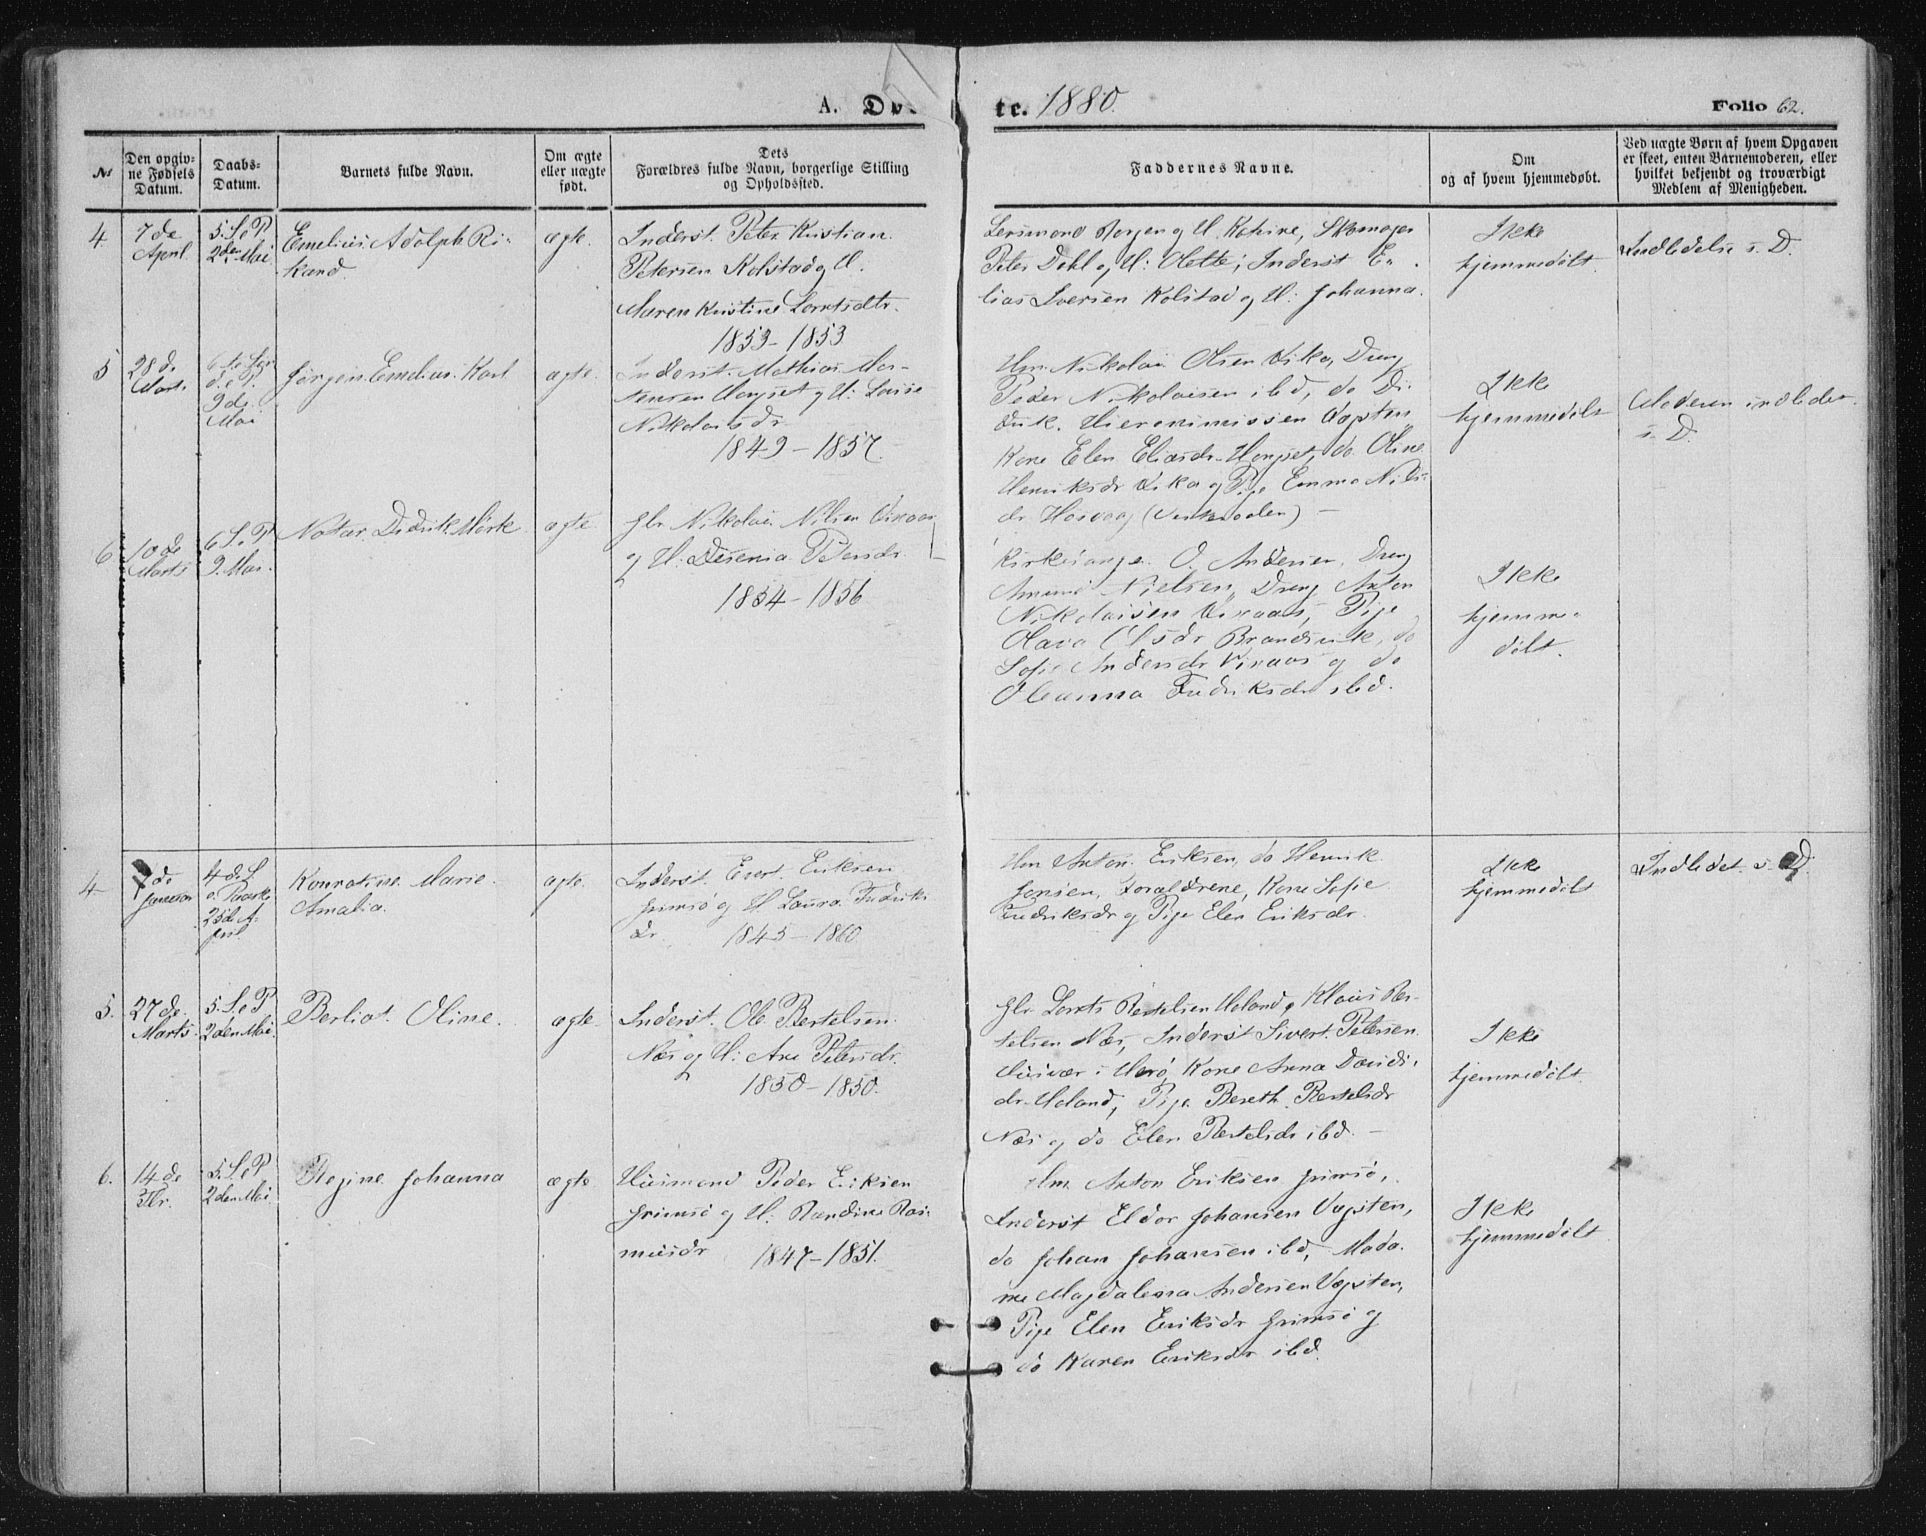 A. Døbte. 1880. Folio 62.
№
Den opgiv-
ne Fødsels
Datum.
Daabs-
Datum.
Barnets fulde Navn.
Om ægte
eller uægte
født.
Dets
Forældres fulde Navn, borgerlige Stilling
og Opholdssted.
Faddernes Navne.
Om
og af hvem hjemmedøbt.
Ved uægte Børn af hvem Opgaven
er skeet, enten Barnemoderen, eller
hvilket bekjendt og troværdigt
Medlem af Menigheden.
4
7de
April
5. S. e. P.
2den Mai
Emelius Adolph Ri-
kard
ægte.
Inderst. Peter Kristian
Petersen Kolstad og H.
Maren Kristine Lorntsdtr.
1853-1853
og H. Katrine, Skomager
Peter Dahl og H: Olette; Inderst E-
lias Iversen Kolstad og H: Johanna.
Ikke
hjemmedøbt.
Indledelse s. D.
5
28de
Marts.
9de
Mai
Jørgen Emelius Karl
ægte.
Inderst. Mathias Mor-
tensen Horsset og H: Lovise
Nikolaisdr.
1849-1857.
Hm. Nikolai Olsen Vika, Dreng
Peder Nikolaisen ibd, do Di-
drik Hieronimussen Vegsten,
Kone Elen Eliasdr. Horsset, do Oline
Henriksdr Vika og Pige Emma Nils-
dr Horvaag
Ikke
hjemmedøbt
Moderen indledet
s. D.
6
10de
Marts
6. S. e. P.
9. Mai.
Notar Didrik Mørk
ægte
Gbr. Nikolai Nilsen Vivaas
og H. Desenia Pedersdr.
1854-1856
Kirkesanger O. Andersen, Dreng
Nielsen, Dreng Anton
Nikolaisen Vivaas, Pige
Olava Olsdr Brandsvik, do
Sofie Andersdr Vivaas og do
Oleanna Fredriksdr ibd.
Ikke
hjemme-
døbt.
4
de
Januar
4de S.
e. Paaske
25de A-
pril.
Konratine Marie
Amalia.
ægte.
Inderst. Evert Eriksen
Grimsø og H. Laura Fredriks
dr. 1845-1860
Hm Anton Eriksen, do Henrik
Jensen, Forældrene, Kone Sofie
Fredriksdr og Pige Elen Eriksdr.
Ikke
hjemmedøbt
Indledet s. D.
5.
27de
Marts.
5. S. e. P.
2den Mai.
Berliat Oline.
ægte.
Inderst. Ole Bertelsen
Næs og H: Ane Petersdr.
1850-1850.
Gbr Lornts Bertelsen Høland, Klaus Ber-
telsen Næs, Inderst Sivert Petersen
Husvær i Herø, Kone Anna Davids-
dr. Høland, Pige Bereth Bertelsdr
Næs og do Elen Bertelsdr ibd. -
Ikke
hjemmedøbt.
6.
14de
Fbr.
5. S. e. P
2den Mai.
Regine Johanna
ægte.
Husmand Peder Eriksen
Grimsø og H: Randine Ras-
musdr 1847-1851.
Hm Anton Eriksen Grimsø,
Inderst Eldor Johansen Vegsten,
do Johan Johansen ibd, Mada-
me Magdalena Andersen Vegsten,
Pige Elen Eriksdr Grimsø og
do Karen Eriksdr ibd.
Ikke
hjemmedøbt